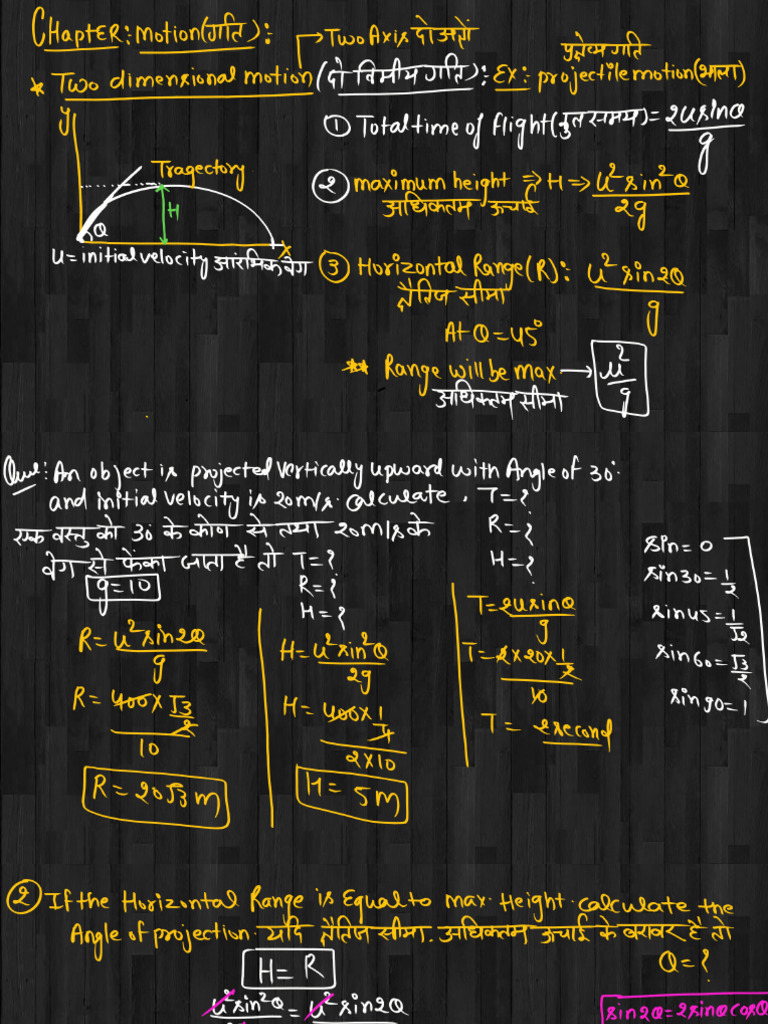 Chapter: Motion(गति):
→ Two Axis दो अक्षों
* Two dimensional motion (दो विमीय गति): Ex: projectile motion (भाला)
प्रक्षेप्य गति
y
Tragectory
H
θ
x
u = initial velocity आरंभिक वेग
① Total time of flight (कुल समय) = 2usinθ/g
② maximum height ⇒ H ⇒ u²sin²θ/2g
अधिकतम ऊचाई
③ Horizontal Range(R): u²sin2θ/g
क्षैतिज सीमा
At θ = 45°
** Range will be max → u²/g
अधिकतम सीमा
Que: An object is projected vertically upward with Angle of 30°
and initial velocity is 20m/s. calculate, T=?
R=?
H=?
एक वस्तु को 30 के कोण से तथा 20m/s के
वेग से फेंका जाता है तो T=?
R=?
H=?
g=10
R = u²sin2θ/g
R = 400 × √3/2 / 10
R = 20√3 m
H = u²sin²θ/2g
H = 400 × 1/4 / 2×10
H = 5m
T = 2usinθ/g
T = 2×20×1/2 / 10
T = 2second
sin = 0
sin30 = 1/2
sin45 = 1/√2
sin60 = √3/2
sin90 = 1
② If the Horizontal Range is Equal to max. Height. calculate the
Angle of projection. यदि क्षैतिज सीमा. अधिकतम ऊचाई के बराबर है तो
θ=?
H = R
u²sin²θ = u²sin2θ
sin2θ = 2sinθcosθ